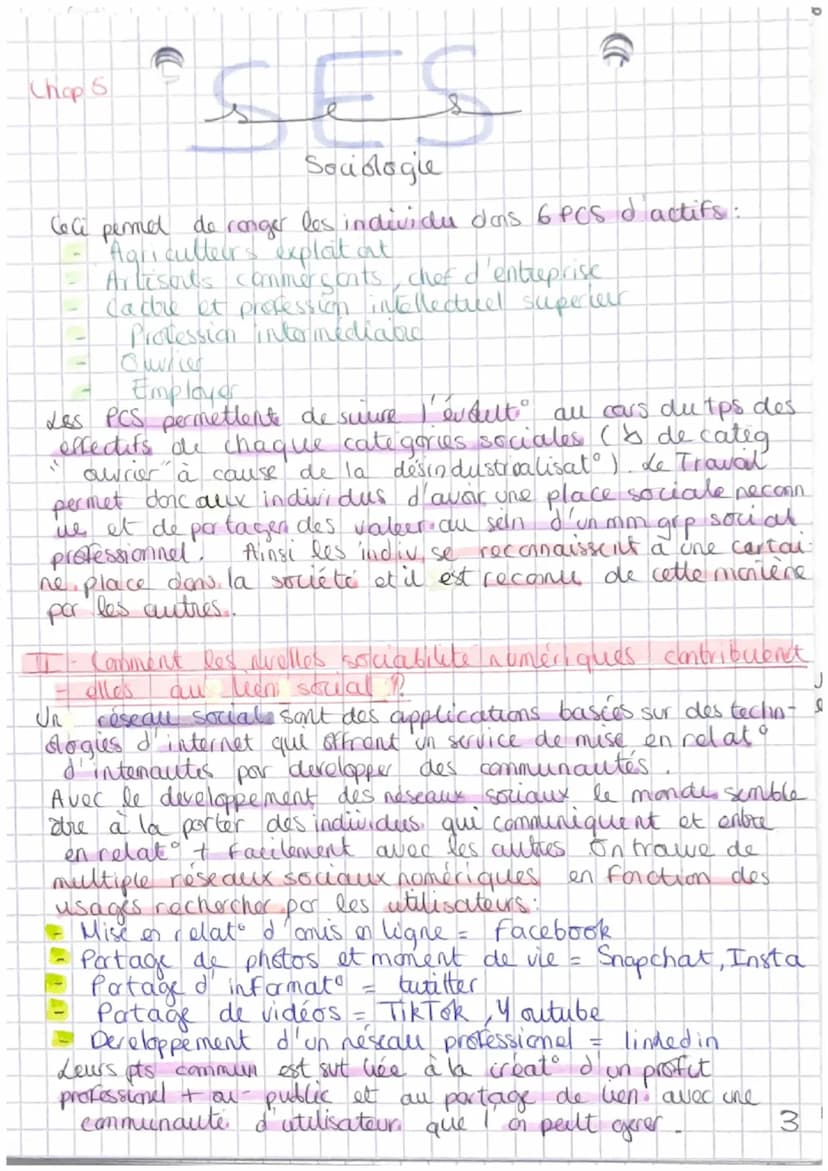 Chap 5
SES
s e s
Sociologie
Ceci permet de ranger les individu dans 6 PCS d'actifs :
- Agriculteurs exploitant
- Artisants commerçants, chef d'entreprise
- Cadre et profession intellectuel superieur
- Profession intermédiaire
- Ouvrier
- Employer
Les PCS permettent de suivre l'évolut° au cours du tps des
effectifs de chaque catégories sociales ( de catég
"ouvrier" à cause de la désindustrialisat°). Le Travail
permet donc aux individus d'avoir une place sociale reconn
ue et de partager des valeur au sein d'un mm grp social
professionnel. Ainsi les indiv se reconnaissent à une certai-
ne place dans la société et il est reconnu de cette manière
par les autres.
II - Comment les nvelles sociabilité numériques contribuent
- elles au lien social ?
Un réseau social sont des applications basées sur des techn-
ologies d'internet qui offrent un service de mise en relat°
d'internautes par developper des communautés.
Avec le developpement des réseaux sociaux le monde semble
être à la porter des individus qui communiquent et entre
en relat° + facilement avec les autres On trouve de
multiple réseaux sociaux numériques en fonction des
usages rechercher par les utilisateurs :
- Mise en relat° d'amis en ligne = Facebook
- Partage de photos et moment de vie = Snapchat, Insta
- Partage d'informat° = twitter
- Partage de vidéos = TikTok, Youtube
- Developpement d'un réseau professionel = linkedin
Leurs pts commun est sut liée à la créat° d'un profit
professionel + ou - public et au partage de lien avec une
communauté d'utilisateur que l'on peut gerer.
3